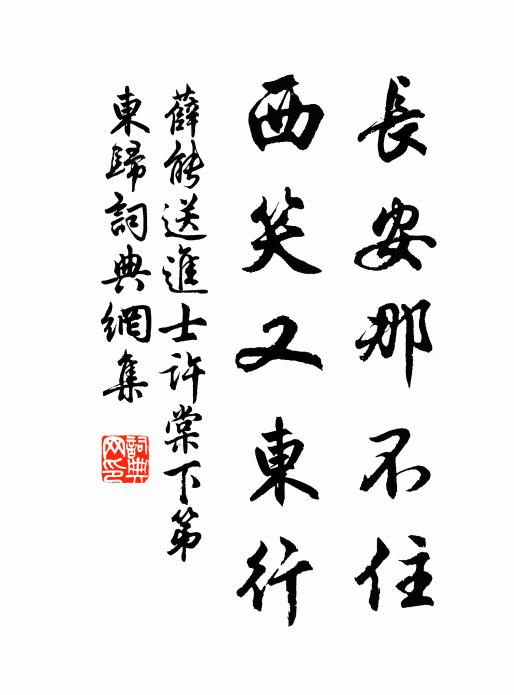 長安那不住
西笑又東行
薛能送進士許棠下第
東歸詞典網集
詞典網印